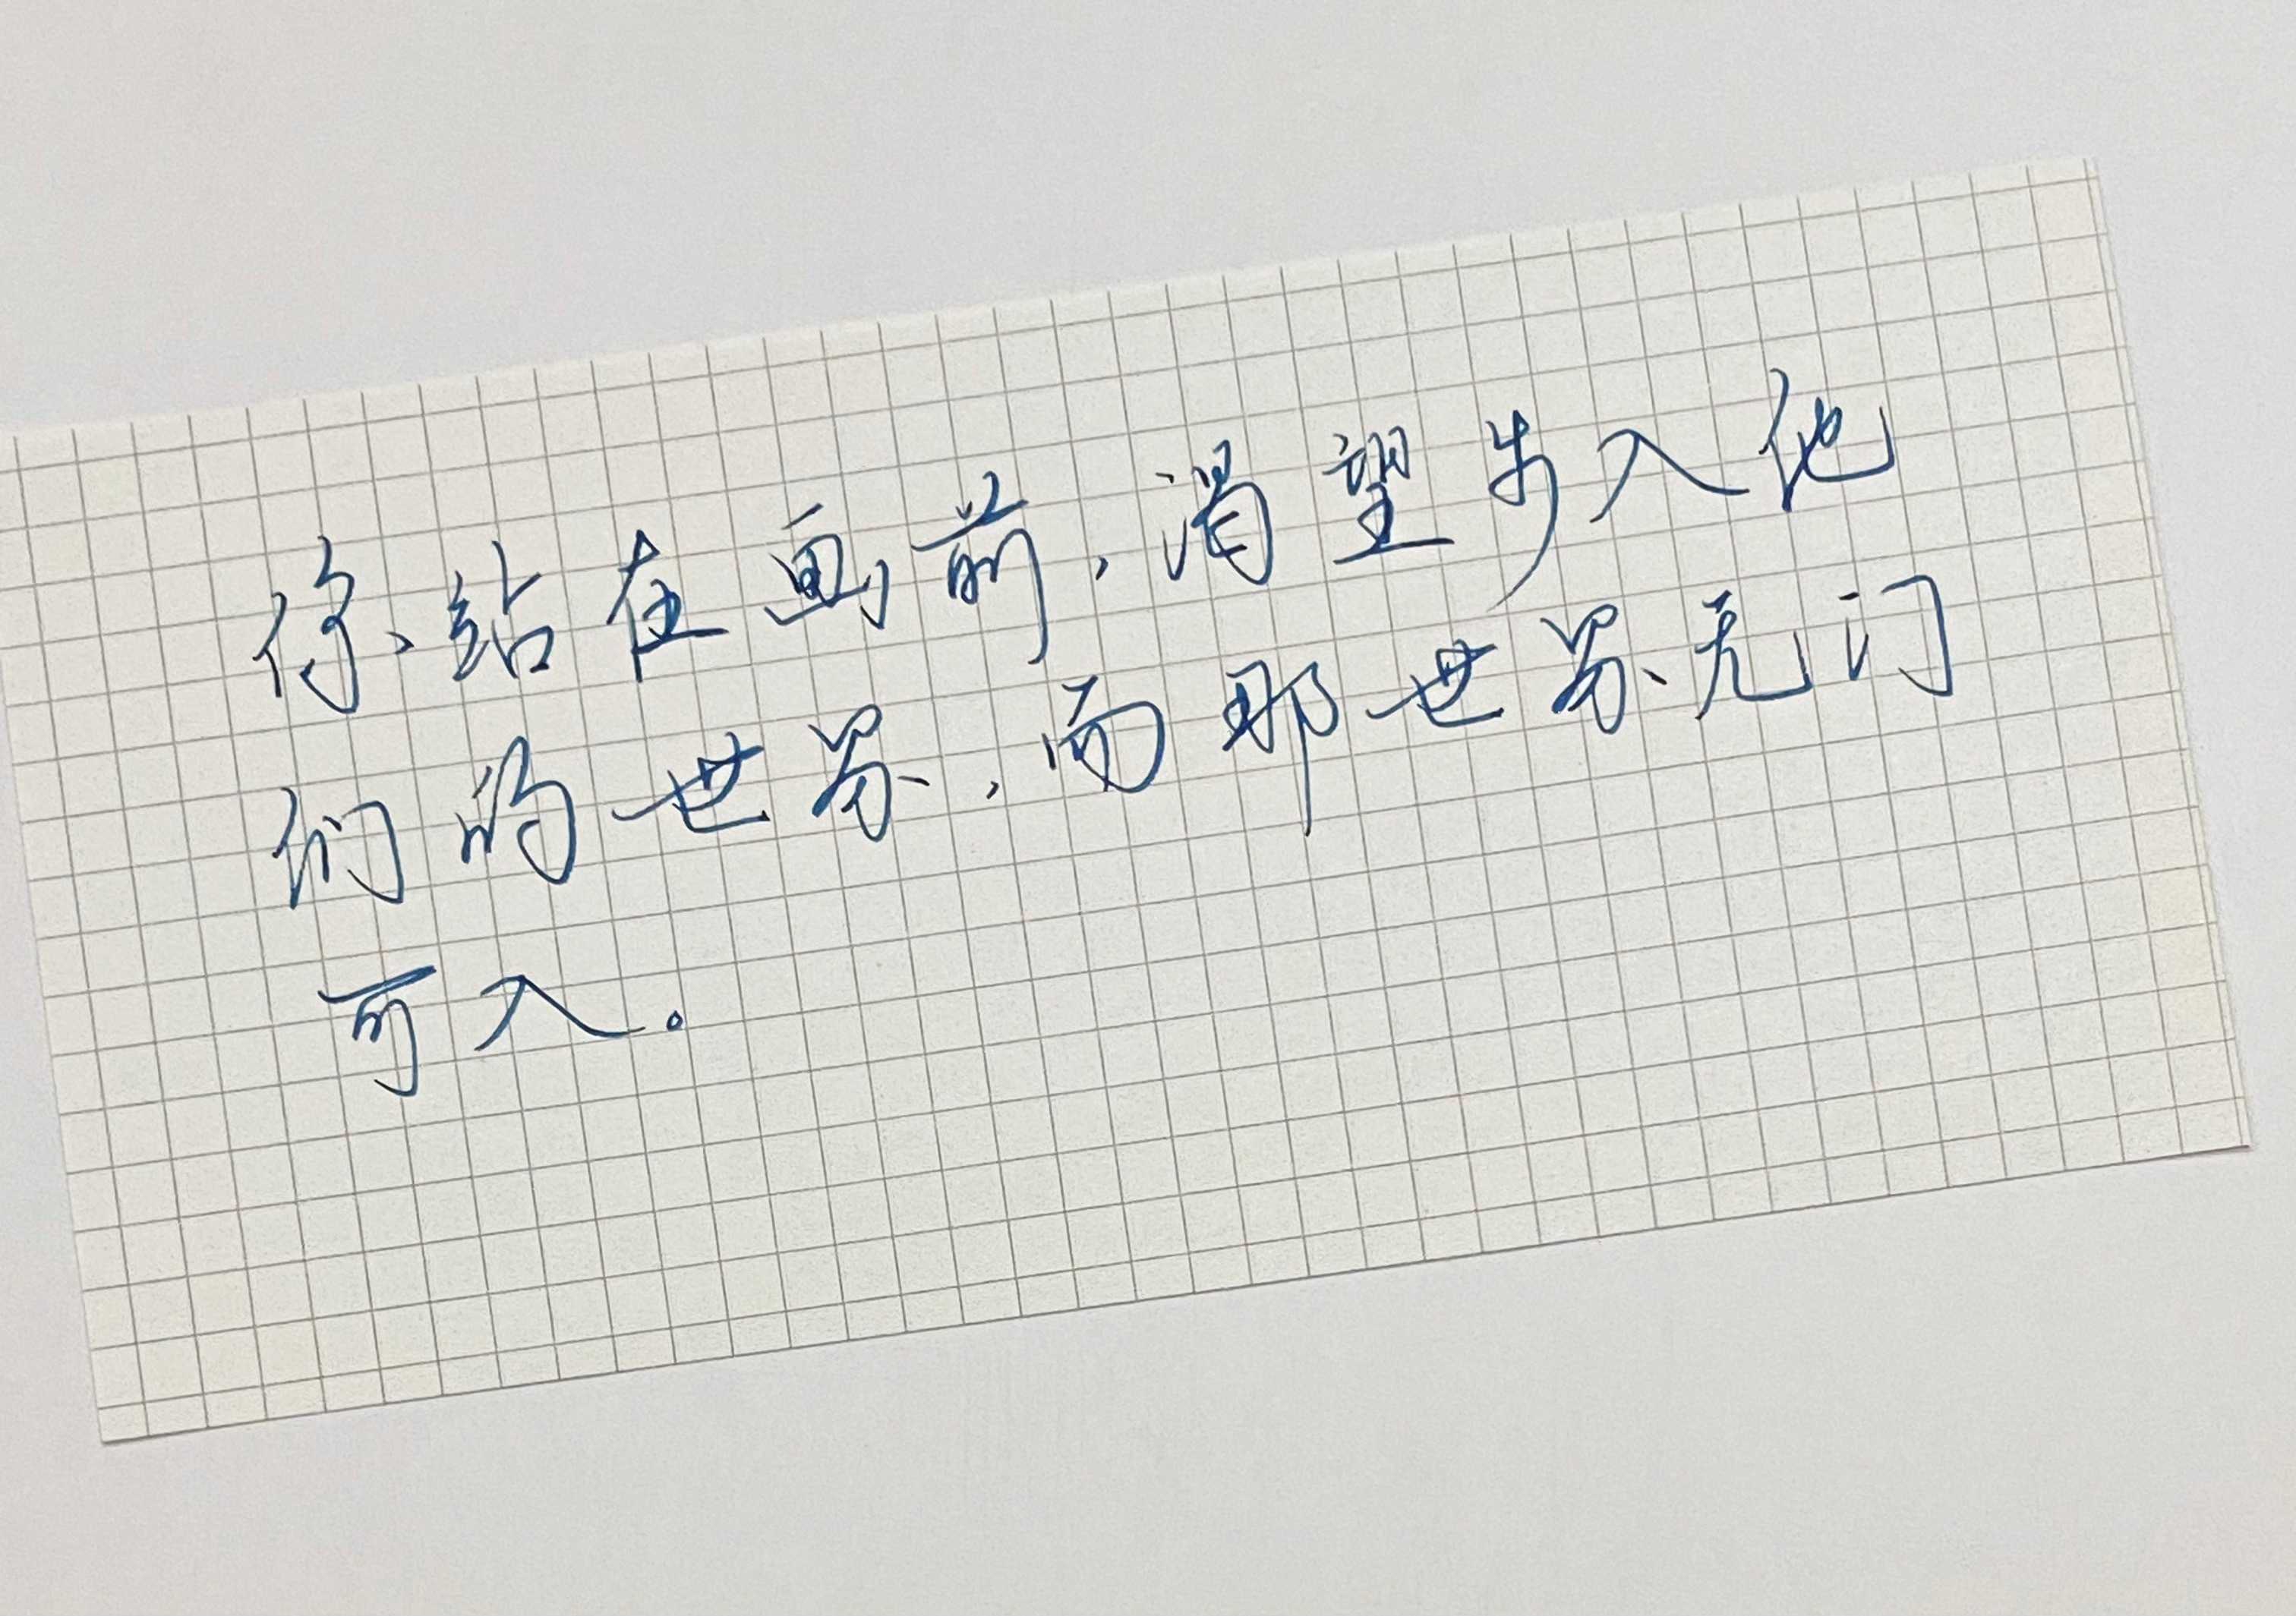 你站在画前,渴望步入他
们的世界,而那世界无门
可入。